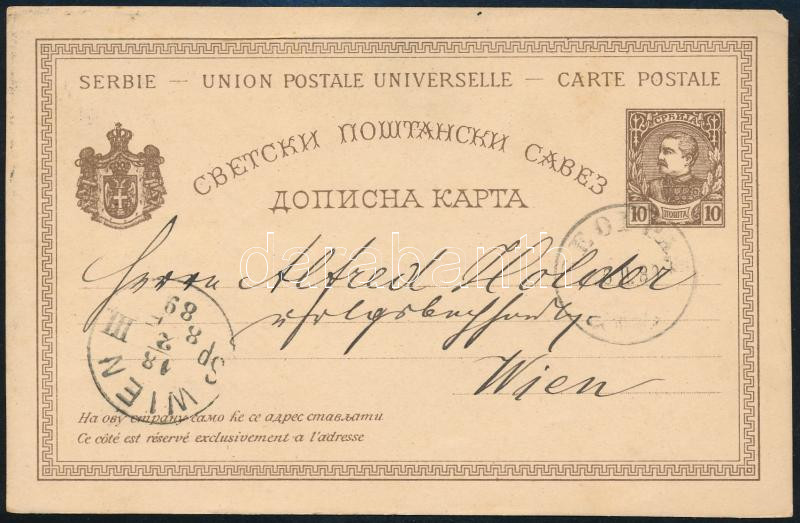 SERBIE — UNION POSTALE UNIVERSELLE — CARTE POSTALE
СВЕТСКИ ПОШТАНСКИ САВЕЗ
ДОПИСНА КАРТА
СРБИЈА
10 ПОШТА 10
Herrn Alfred Hölder
Wien
WIEN
III
18
2
89
На ову страну само ће се адрес стављати
Ce côté est réservé exclusivement a l'adresse
darabanth